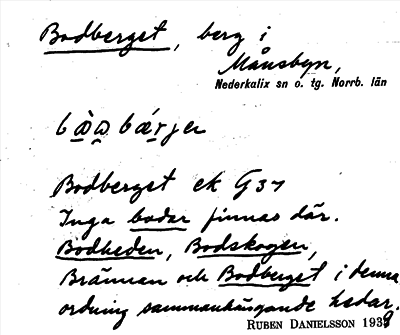 Bodberget, berg i
Månsbyn,
Nederkalix sn o. tg. Norrb. län
Bodberget ek G37
Inga bodar finnas där.
Bodheden, Bodskogen,
Brännan och Bodberget i denna
ordning sammanhängande hedar.
RUBEN DANIELSSON 1939